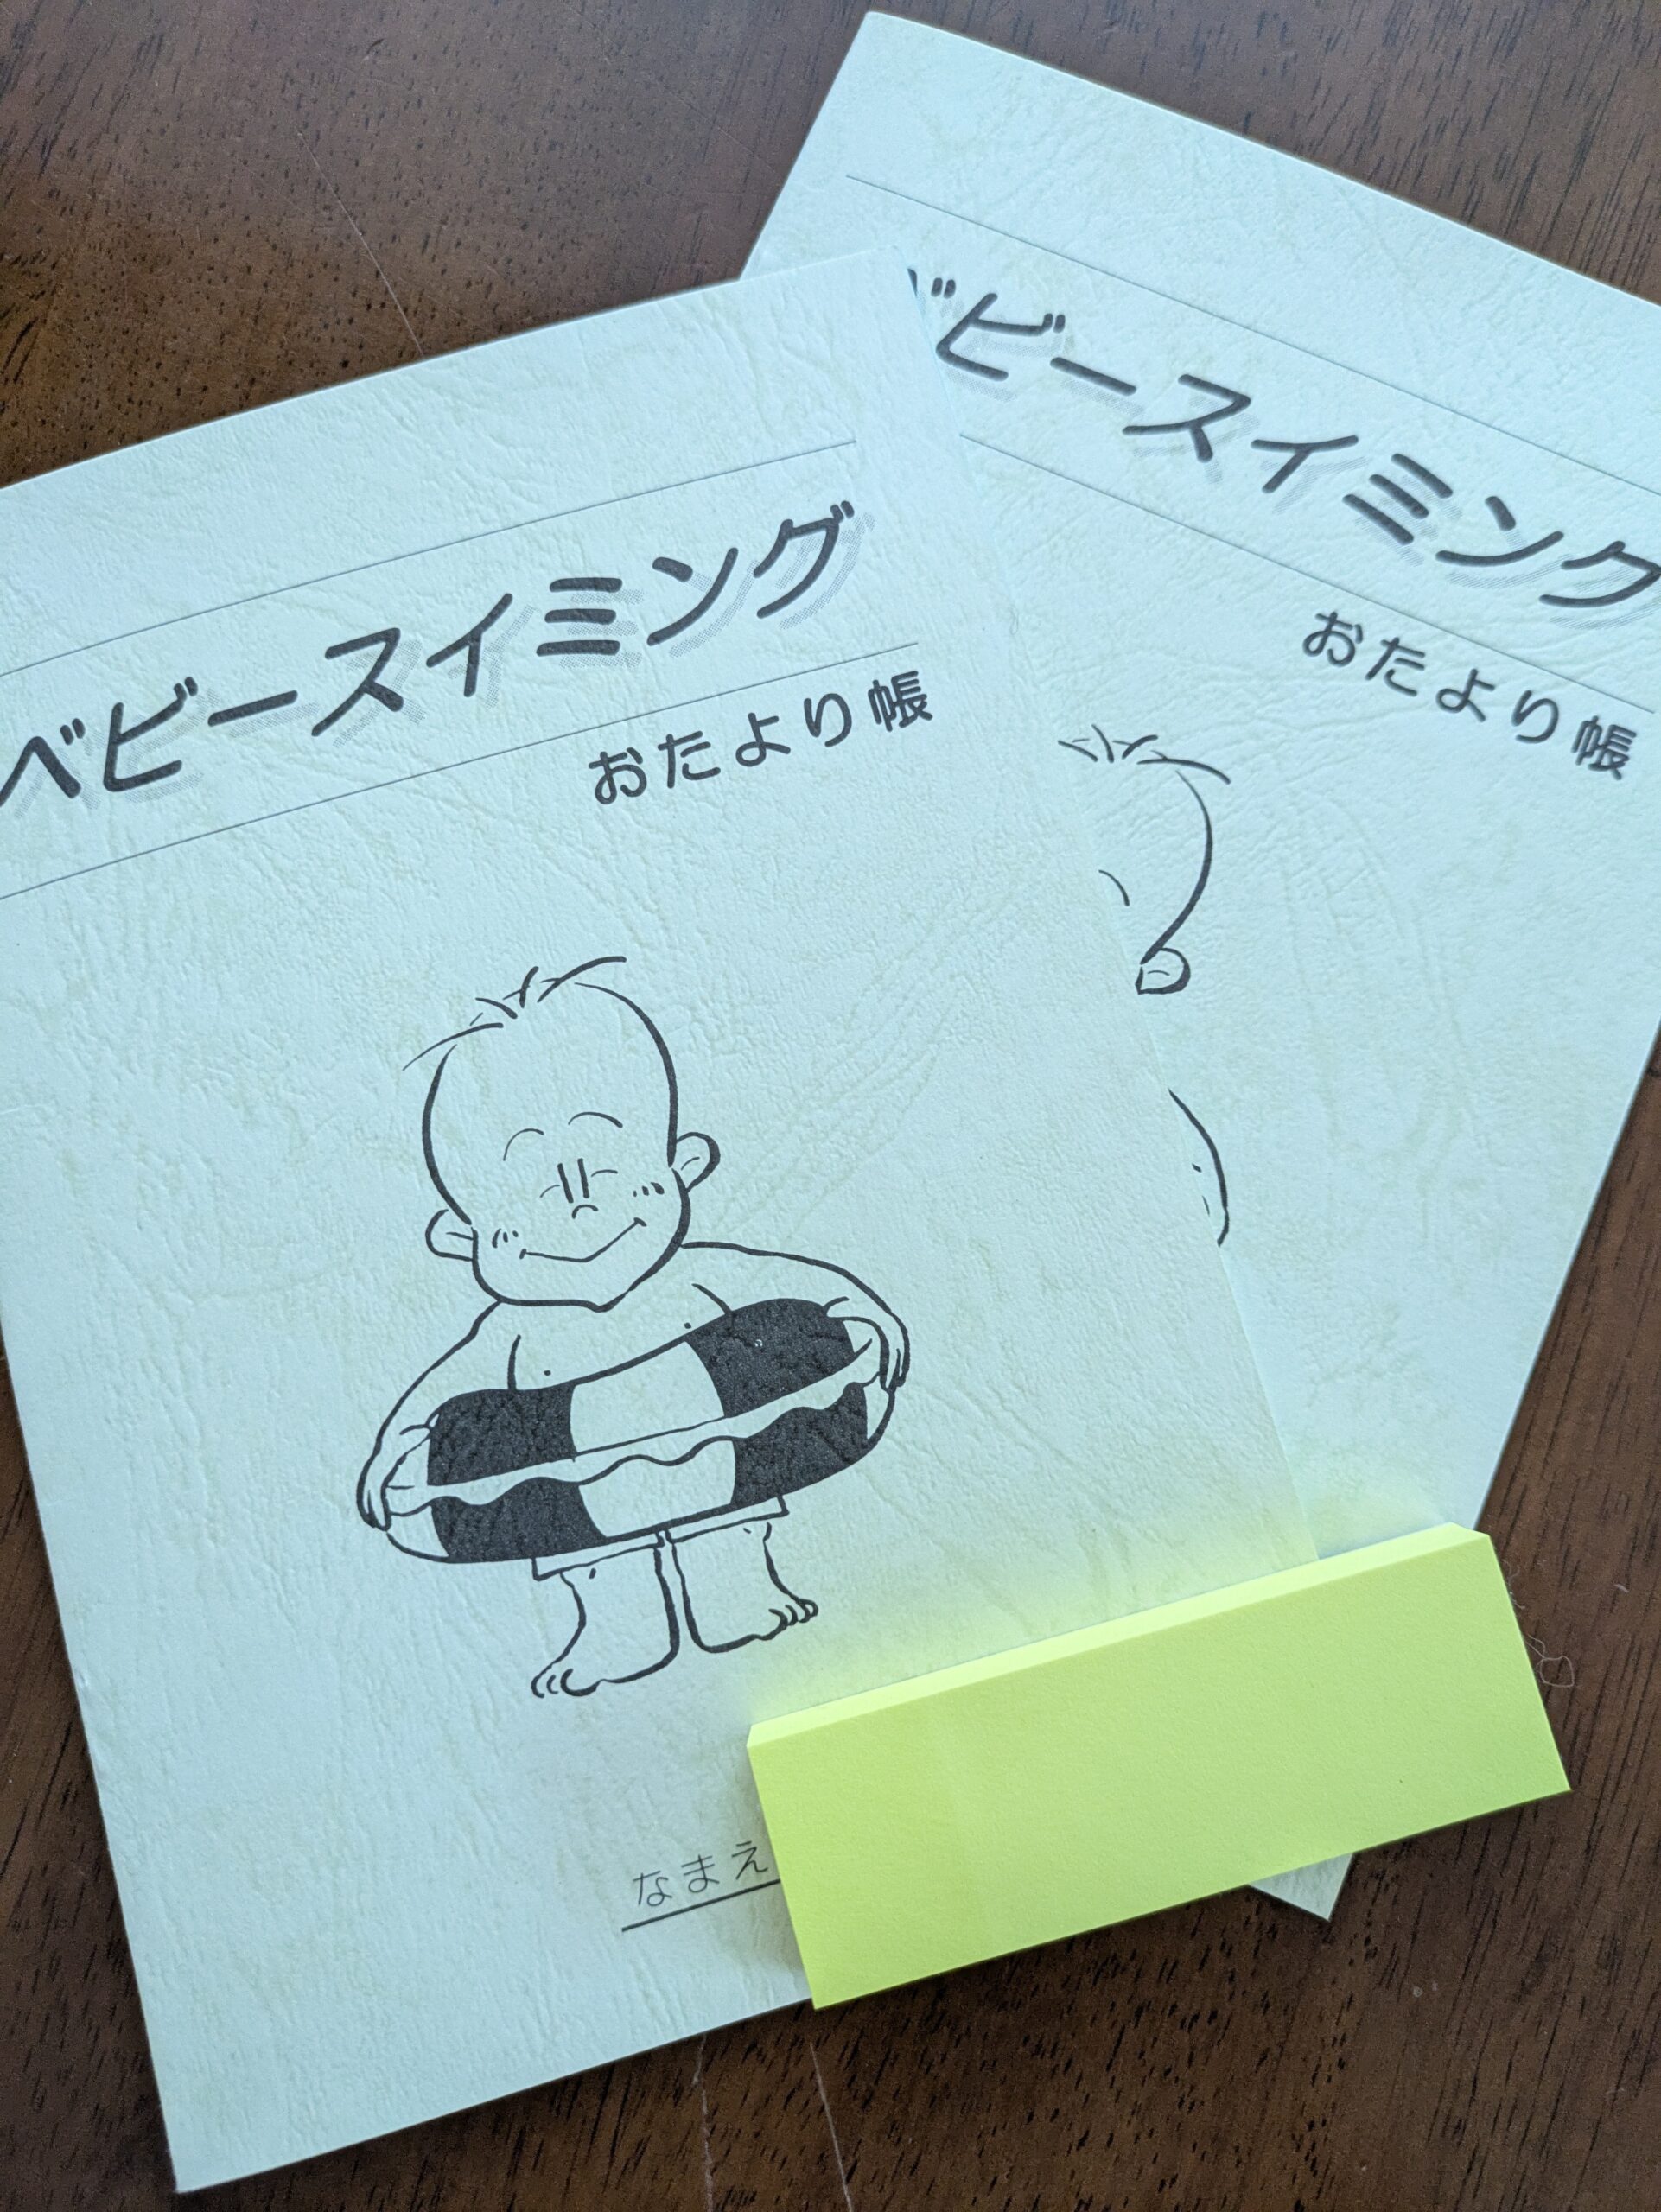 ベビースイミング
おたより帳
なまえ
ビースイミング
おたより帳